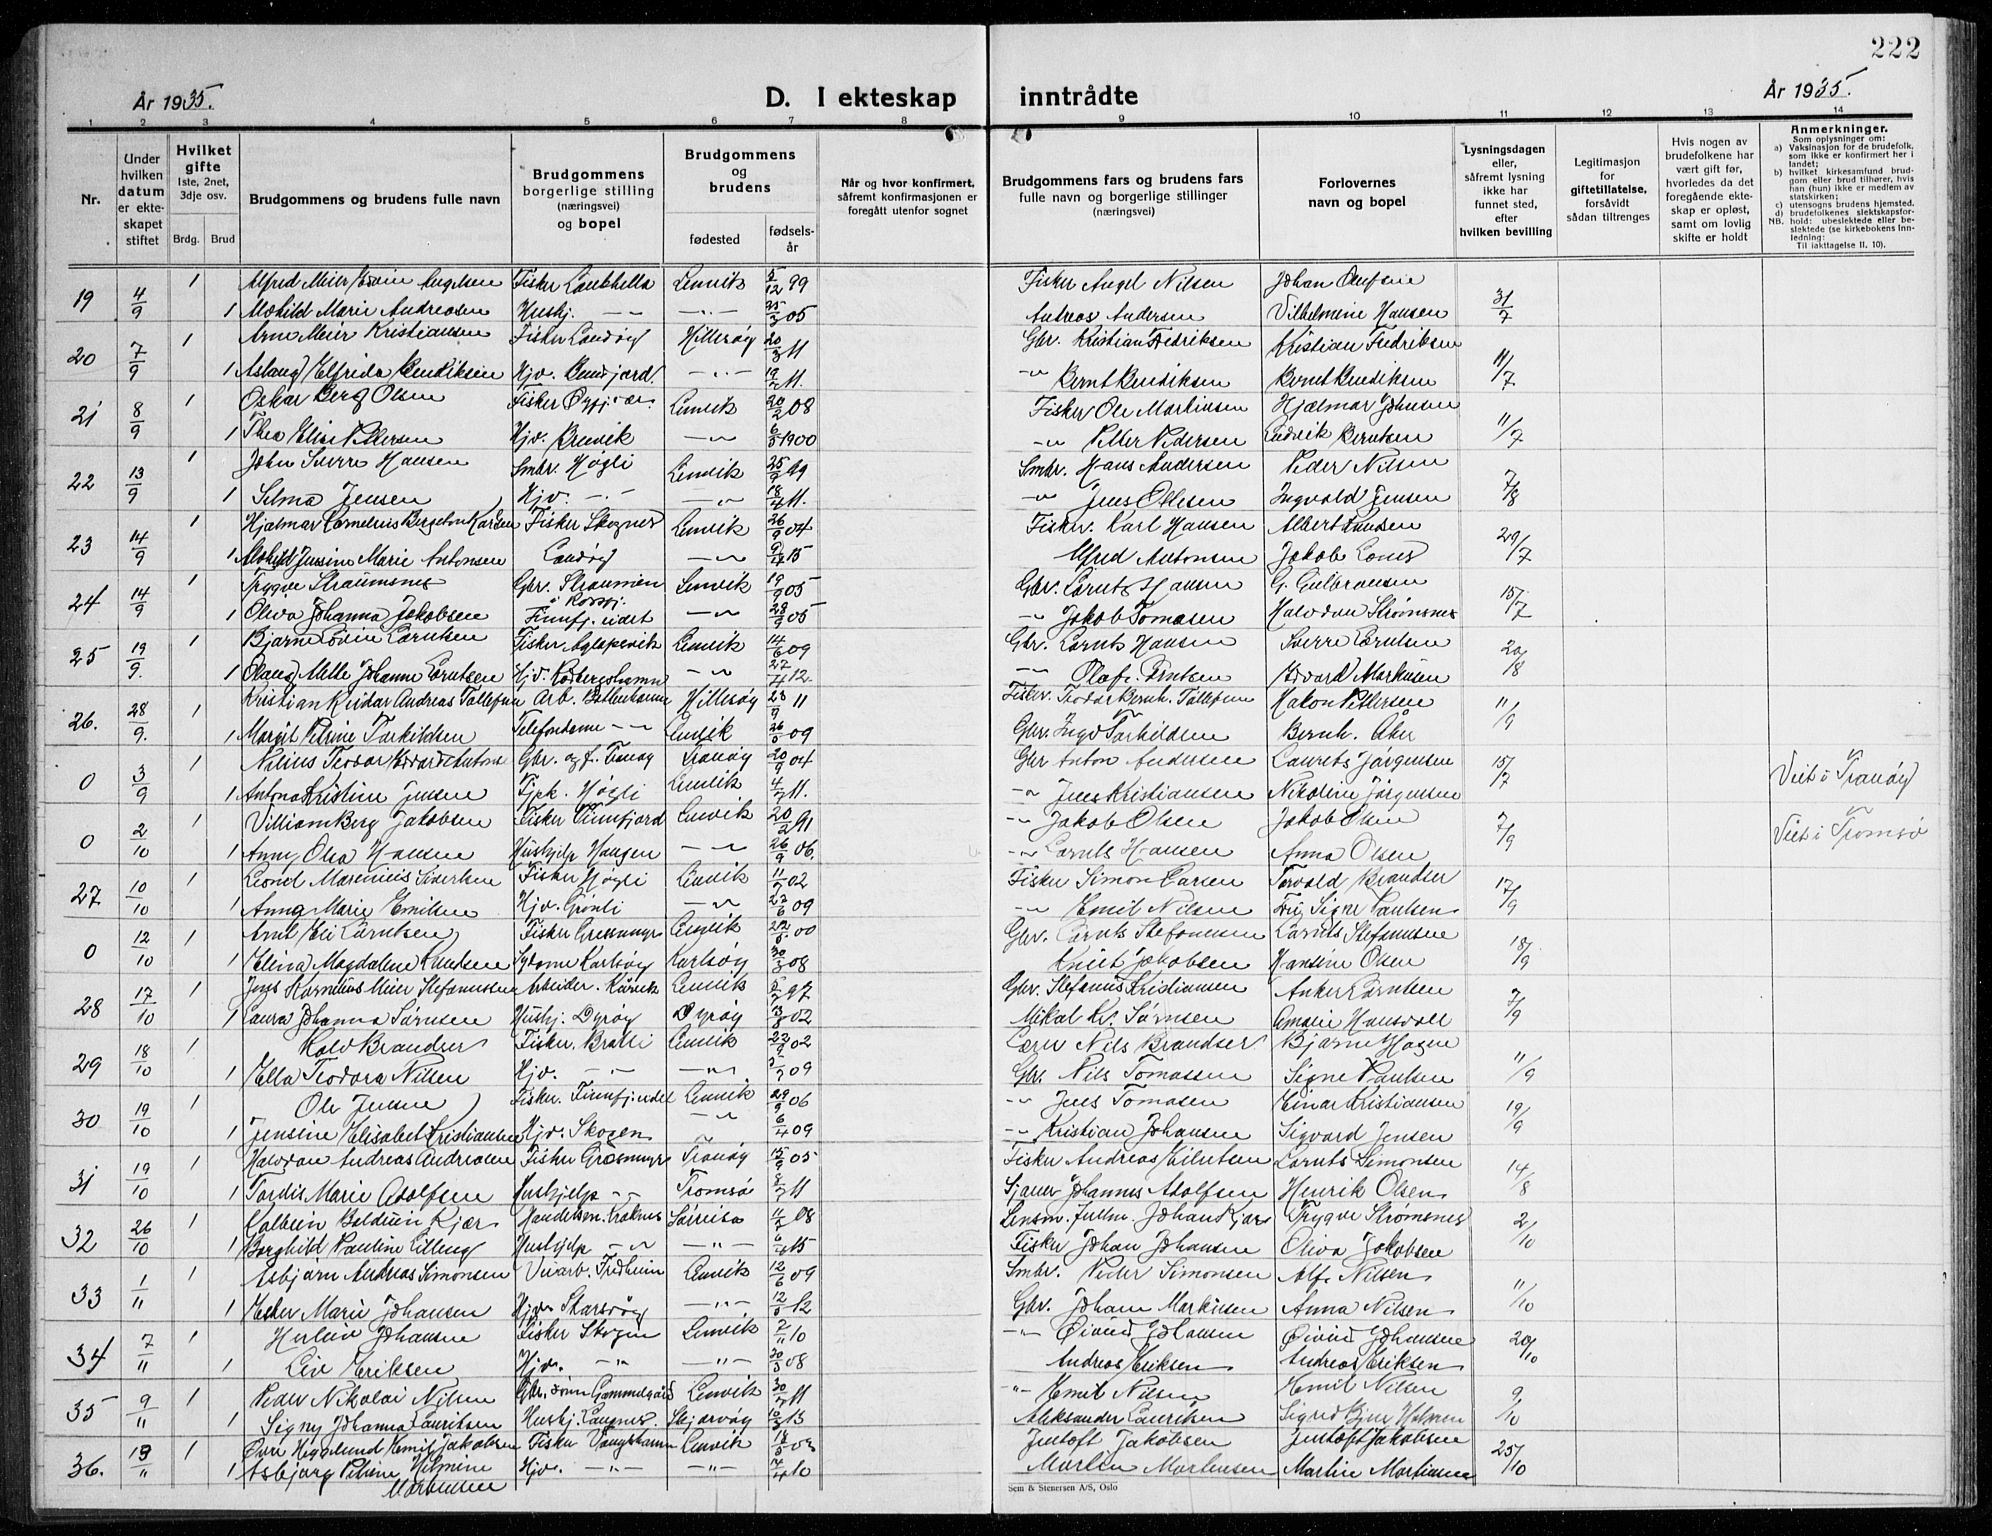 222
År 1935.
D. I ekteskap inntrådte
År 1935.
1 2 3 4 5 6 7 8 9 10 11 12 13 14
Nr.
Under hvilken datum er ekteskapet stiftet
Hvilket gifte
1ste, 2net, 3dje osv.
Brdg. Brud
Brudgommens og brudens fulle navn
Brudgommens borgerlige stilling (næringsvei) og bopel
Brudgommens og brudens
fødested
fødselsår
Når og hvor konfirmert, såfremt konfirmasjonen er foregått utenfor sognet
Brudgommens fars og brudens fars fulle navn og borgerlige stillinger (næringsvei)
Forlovernes navn og bopel
Lysningsdagen eller, såfremt lysning ikke har funnet sted, efter hvilken bevilling
Legitimasjon for giftetillatelse, forsåvidt sådan tiltrenges
Hvis nogen av brudefolkene har vært gift før, hvorledes da det foregående ekteskap er opløst, samt om lovlig skifte er holdt
Anmerkninger.
Som oplysninger om:
a) Vaksinasjon for de brudefolk, som ikke er konfirmert her i landet;
b) hvilket kirkesamfund brudgom eller brud tilhører, hvis han (hun) ikke er medlem av statskirken;
c) utensogns brudens hjemsted.
d) brudefolkenes slektskapsforhold: ubeslektede eller beslektede (se kirkebokens Innledning: Til iakttagelse II, 10).
NB.
19 4/9 1 Alfred Meier Edvin Angelsen Fisker Laukhella Lenvik 5/12 99 Fisker Angel Nilsen Johan Olufsen 31/7
1 Mathild Marie Andreasen Hushj. — — —"— 25/3 05 Andreas Andersen Vilhelmine Hansen
20 7/9 1 Arne Meier Kristiansen Fisker Sandøy Hillesøy 20/3 11 Gbr. Kristian Fredriksen Kristian Fredriksen 11/7
1 Aslaug Elfrida Bendiksen Hjv. —"— 19/7 11. —"— Bernt Bendiksen Bernt Bendiksen
21 8/9 1 Oskar Berg Olsen Fisker Lenvik 20/2 08 Fisker Ole Martinsen Hjalmar Johnsen 11/7
1 Thea Elise Pettersen Hjv. Brevik —"— 6/5 1900 —"— Petter Pedersen Ludvik Berntsen
22 13/9 1 John Sverre Hansen Smbr. Høgli Lenvik 25/9 99 Smbr. Hans Andersen Peder Nilsen 7/8
1 Selma Jensen Hjv. —"— —"— 18/4 11. —"— Jens Ollesen Ingvald Jensen
23 14/9 1 Hjalmar Kornelius Bergeton Karlsen Fisker Skognes Lenvik 26/9 04 Fisker. Karl Hansen Albert Knudsen 29/7
1 Mathild Jensine Marie Antonsen Sandøy —"— 9/4 15 Alfred Antonsen Jakob
24 14/9 1 Trygve Straumsnes Gbr. Straumen i Rossfj. Lenvik 19/9 05 Gbr. Lorents Hansen G. Gulbransen 15/7
1 Oliva Johanna Jakobsen Finnfj.eidet —"— 28/9 05 —"— Jakob Tomasen Halvdan Strømsnes
25 19/9. 1 Bjarne Edvin Lorntsen Fisker Aglapsvik Lenvik 14/6 09 Gbr. Lornts Hansen Sverre Lorntsen 20/8
1 Olaug Melle Johanne Lorntsen Hjv. Rødbergshamn —"— 27/4 12. —"— Olaf Lorntsen Edvard Markusen
26. 28/9. 1 Kristian Reidar Andreas Tollefsen Arb. Botnhamn Hillesøy 23/9 11 Fisker. Teodor Bernh. Tollefsen Hakon Pettersen 11/9
1 Margit Petrine Torkildsen Telefondame —"— Lenvik 26/5 09 Gbr. Ingv. Torkildsen Bernh. Aker
0 3/9 1 Nilius Teodor Edvard Antons Gbr. og f. Tranøy Tranøy 20/9 04 Gbr Anton Andersen Laurets Jørgensen 15/7 Viet i Tranøy
1 Antona Kristine Jensen Tjpk. Høgli Lenvik 4/7 11. —"— Jens Kristiansen Nikoline Jørgensen
0 2/10 1 Villiam Berg Jakobsen Fisker Finnfjord Lenvik 20/2 91 —"— Jakob Olsen Jakob Olsen 7/9 Viet i Tromsø
1 Anny Olsa Hansen Hushjelp Haugen —"— 26/9 06. —"— Lornts Hansen Anna Olsen
27 10/10 1 Leonel Marenius Fisker Høgli Lenvik 11/7 02 Fisker Simon Larsen Torvald Brandser 17/9
1 Anna Marie Emilsen Hjv. Grønli —"— 27/6 09 —"— Emil Nilsen Frk Signe Paulsen
0 12/10 1 Arnt Eli Lorntsen Fisker Gressmyr Lenvik 22/5 00 Gbr. Lornts Stefanussen Lornts Stefanussen 18/9
1 Elina Magdalene Knudsen Sydame Karlsøy Karlsøy 30/3 08 Knut Jakobsen Hansine Olsen
28 17/10 1 Jens Kornelius Meier Stefanussen Arbeider. Lenvik 5/7 97 Gbr. Stefanus Kristiansen Anker Lorntsen 7/9
1 Laura Johanna Sørnsen Hushj. Dyrøy Dyrøy 13/8 02 Mikal Kr. Sørnsen Amalie
29 18/10 1 Rolv Brandser Fisker. Bratli Lenvik 22/9 02 Lærer Nils Brandser Bjarne Hagen 11/9
1 Ella Teodora Nilsen Hjv. —"— —"— 09 Gbr. Nils Tomassen Signe Paulsen
30 19/10 1 Ole Jensen Fisker. Finnfj.eidet Lenvik 29/9 06 —"— Jens Tomasen Einar Kristiansen 19/9
1 Jensine Elisabet Kristiansen Hjv. Skogen —"— 6/4 09 —"— Kristian Johansen Sigvard Jensen
31 19/10 1 Halvdan Andreas Andreasen Fisker Grasmyr Tranøy 15/9 05 Fisker Andreas Eilertsen Lornts Simonsen 14/8
1 Tordis Marie Adolfsen Hushjelp —"— Tromsø 8/7 11 Sjauer Johannes Adolfsen Henrik Olsen
32 26/10 1 Kolbein Baldvin Kjær Handelsm. Kraknes Sørreisa 11/5 08 Lensm. fullm. Johan Kjær Trygve Strømsnes 2/10
1 Borghild Pauline Elling Hushjelp —"— —"— 6/4 15 Fisker Johan Johansen Oliva Jakobsen
33 1/11 1 Asbjørn Andreas Simonsen Veiarb. Fredheim Lenvik 12/6 09 Smbr. Peder Simonsen Alf Nilsen 11/10
1 Ester Marie Johansen Hjv. Skarsvåg —"— 12/5 12 Gbr. Johan Markusen Anna Nilsen
34 7/11 1 Herleiv Johansen Fisker Skogen Lenvik 2/11 10 —"— Øivind Johansen Øivind Johansen 20/10
1 Liv Eriksen Hjv. —"— —"— 20/3 08 Andreas Eriksen Andreas Eriksen
35 9/11 1 Peder Nikolai Nilsen Gbr. sønn Gammelgård Lenvik 30/7 11 —"— Emil Nilsen Emil Nilsen 9/10
1 Signy Johanna Lauritsen Hushj. Laugnes. Skjervøy 10/3 13 Aleksander Lauritsen Sigrid Holmen
36. 13/11 1 Ove Hegglund Emil Jakobsen Fisker Vangshamn Lenvik 18/5 03 Jentoft Jakobsen Jentoft Jakobsen 25/10
1 Asbjørg Petrine Hilmine Mortensen Hjv. —"— —"— 14/4 10 Martin Mortensen Martin Mortensen
Sem & Stenersen A/S, Oslo